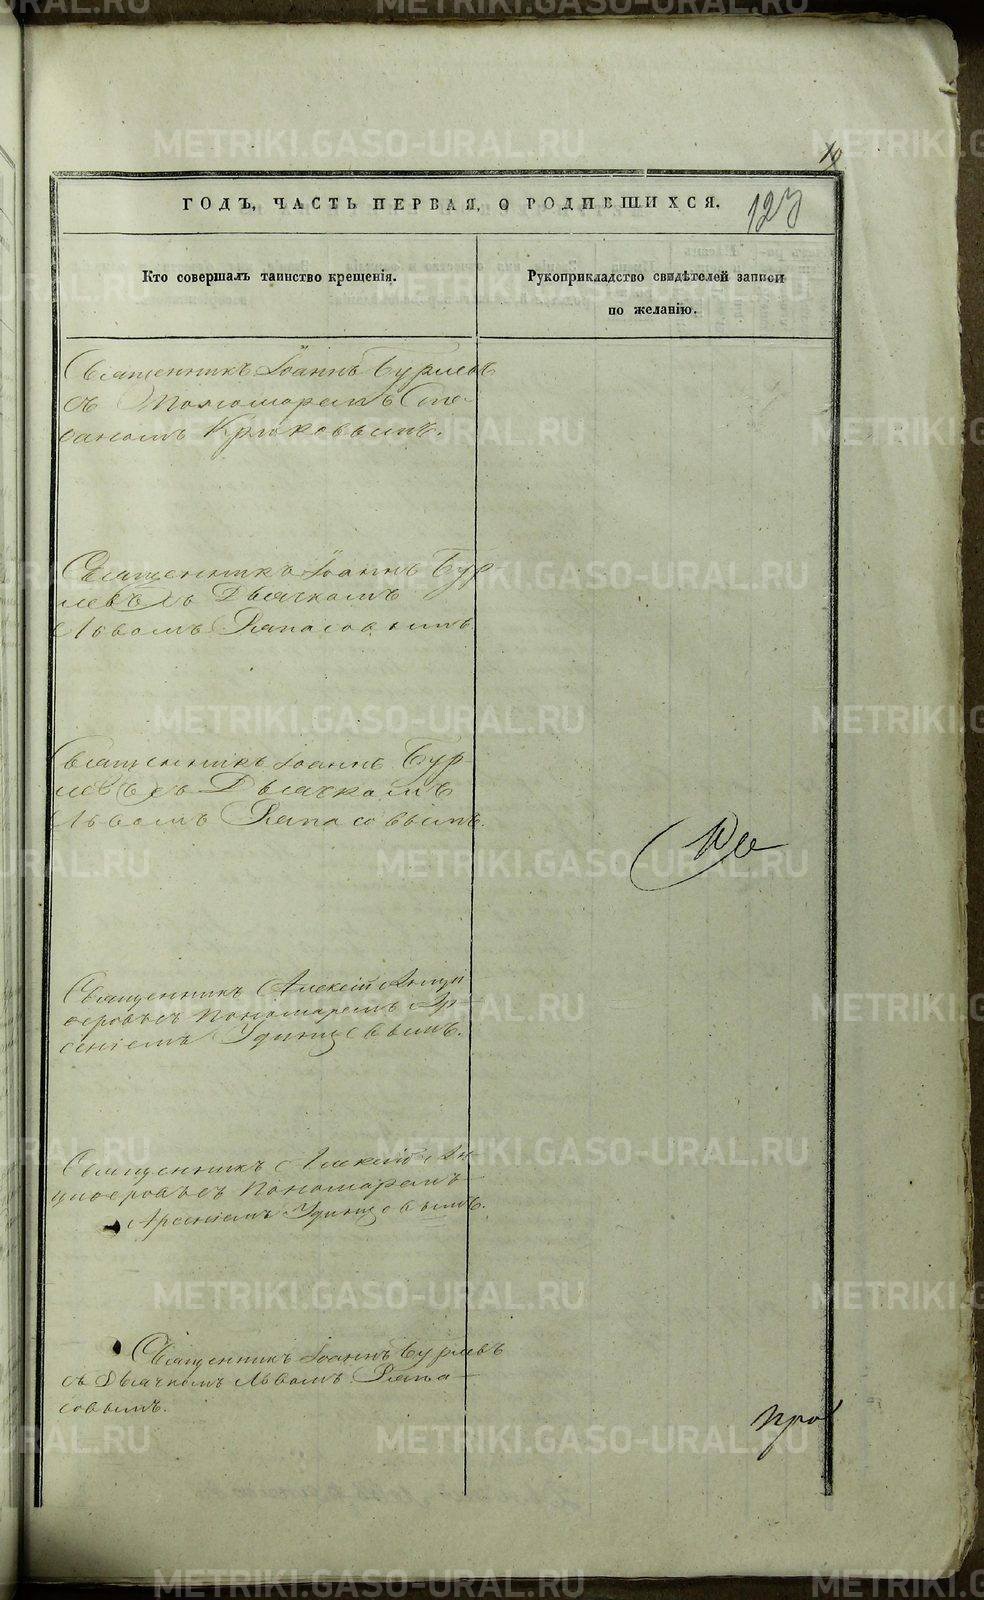 10
ГОДЪ, ЧАСТЬ ПЕРВАЯ, О РОДИВШИХСЯ.
123
Кто совершалъ таинство крещенія.
Рукоприкладство свидѣтелей записи
по желанію.
Священникъ Іоаннъ Бурлевъ
съ Пономаремъ Сте-
фаномъ Крюковымъ.
Священникъ Іоаннъ Бур-
левъ съ Дьячкомъ
Львомъ Репасовымъ
Священникъ Іоаннъ Бур
левъ съ Дьячкомъ
Львомъ Репасовымъ.
Священникъ Алексій Анци
феровъ съ Пономаремъ Ар-
сеніемъ Удинцовымъ.
Священникъ Алексій Ан
циферовъ съ Пономаремъ
Арсеніемъ Удинцовымъ.
Священникъ Іоаннъ Бурлевъ
съ Дьячкомъ Львомъ Репа-
совымъ.
METRIKI.GASO-URAL.RU